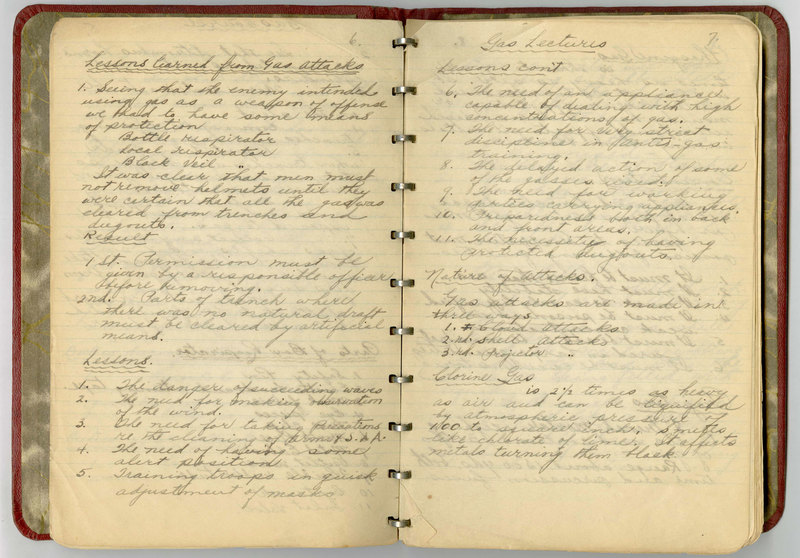 6.
Lessons learned from Gas attacks
1. Seeing that the enemy intended
using gas as a weapon of offense
we had to have some means
of protection
Bottle respirator
Local respirator
Black Veil "
It was clear that men must
not remove helmets until they
were certain that all the gas was
cleared from trenches and
dugouts.
Result
1st. Permission must be
given by a responsible officer
before removing.
2nd. Parts of trench where
there was no natural draft
must be cleared by artificial
means.
Lessons.
1. The danger of succeeding waves
2. The need for making observation
of the wind.
3. The need for taking precautions
re the cleaning of arms & S.A.A.
4. The need of having some
alert position
5. Training troops in quick
adjustment of masks
Gas Lectures 7.
Lessons con't
6. The need of an appliance
capable of dealing with high
concentrations of gas.
7. The need for very strict
discipline in anti-gas
training.
8. The delayed action of some
of the gasses used.
9. The need for working
parties carrying appliances.
10. Preparedness both in back
and front areas.
11. The necessity of having
protected dugouts.
Nature of attacks.
Gas attacks are made in
three ways
1. Cloud attacks
2.nd. Shell attacks
3.rd. Projector "
Clorine Gas
is 2 1/2 times as heavy
as air and can be liquified
by atmospheric pressure of
100 to square inch. Smells
like chlorate of lime. It effects
metals turning them black.